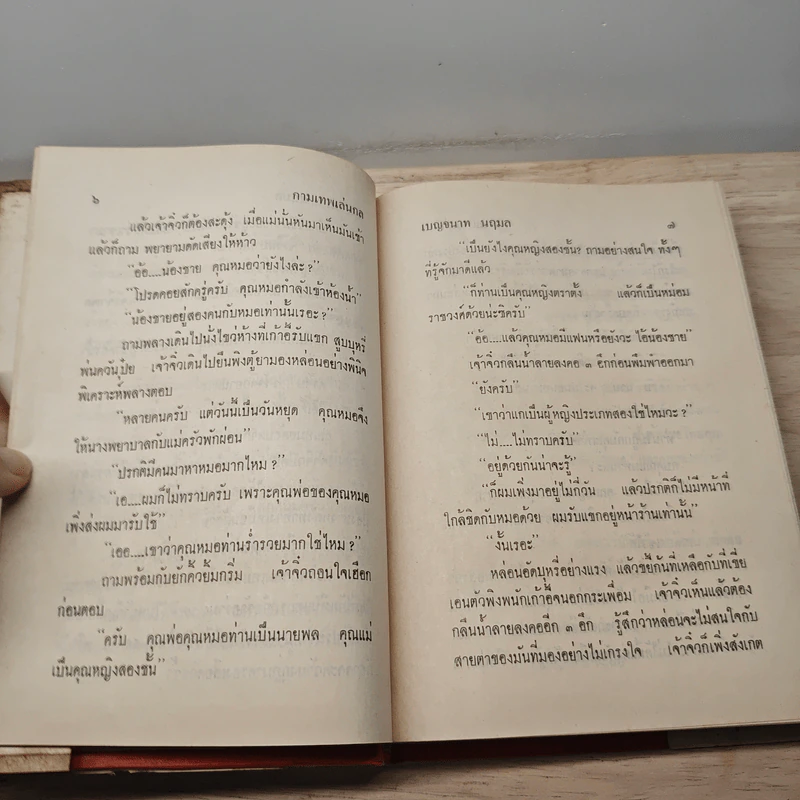 ๖ กามเทพเล่นกล
แล้วเจ้าจิ๋วก็ต้องสะดุ้ง เมื่อแม่นั่นหันมาเห็นมันเข้า
แล้วก็ถาม พยายามดัดเสียงให้ห้าว
“อ้อ....น้องชาย คุณหมอว่ายังไงล่ะ?”
“โปรดคอยสักครู่ครับ คุณหมอกำลังเข้าห้องน้ำ”
“น้องชายอยู่สองคนกับหมอเท่านั้นเรอะ?”
ถามพลางเดินไปนั่งไขว่ห้างที่เก้าอี้รับแขก สูบบุหรี่
พ่นควันปุ๋ย เจ้าจิ๋วเดินไปยืนพิงตู้ยามองหล่อนอย่างพินิจ
พิเคราะห์พลางตอบ
“หลายคนครับ แต่วันนี้เป็นวันหยุด คุณหมอจึง
ให้นางพยาบาลกับแม่ครัวพักผ่อน”
“ปรกติมีคนมาหาหมอมากไหม?”
“เอ....ผมก็ไม่ทราบครับ เพราะคุณพ่อของคุณหมอ
เพิ่งส่งผมมารับใช้”
“เออ....เขาว่าคุณหมอท่านร่ำรวยมากใช่ไหม?”
ถามพร้อมกับยักคิ้วยิ้มกริ่ม เจ้าจิ๋วถอนใจเฮือก
ก่อนตอบ
“ครับ คุณพ่อคุณหมอท่านเป็นนายพล คุณแม่
เป็นคุณหญิงสองชั้น”
เบญจนาท นฤมล ๗
“เป็นยังไงคุณหญิงสองชั้น? ถามอย่างสนใจ ทั้งๆ
ที่รู้จักมาดีแล้ว
“ก็ท่านเป็นคุณหญิงตราตั้ง แล้วก็เป็นหม่อม
ราชวงศ์ด้วยน่ะซิครับ”
“อ้อ....แล้วคุณหมอมีแฟนหรือยังวะ ไอ้น้องชาย”
เจ้าจิ๋วกลืนน้ำลายลงคอ ๓ อึกก่อนพึมพำออกมา
“ยังครับ”
“เขาว่าแกเป็นผู้หญิงประเภทสองใช่ไหมวะ?”
“ไม่....ไม่ทราบครับ”
“อยู่ด้วยกันน่าจะรู้”
“ก็ผมเพิ่งมาอยู่ไม่กี่วัน แล้วปรกติก็ไม่มีหน้าที่
ใกล้ชิดกับหมอด้วย ผมรับแขกอยู่หน้าร้านเท่านั้น”
“งั้นเรอะ”
หล่อนอัดบุหรี่อย่างแรง แล้วขยี้ก้นที่เหลือกับที่เขี่ย
เอนตัวพิงพนักเก้าอี้จนอกกระเพื่อม เจ้าจิ๋วเห็นแล้วต้อง
กลืนน้ำลายลงคออีก ๓ อึก รู้สึกว่าหล่อนจะไม่สนใจกับ
สายตาของมันที่มองอย่างไม่เกรงใจ เจ้าจิ๋วก็เพิ่งสังเกต